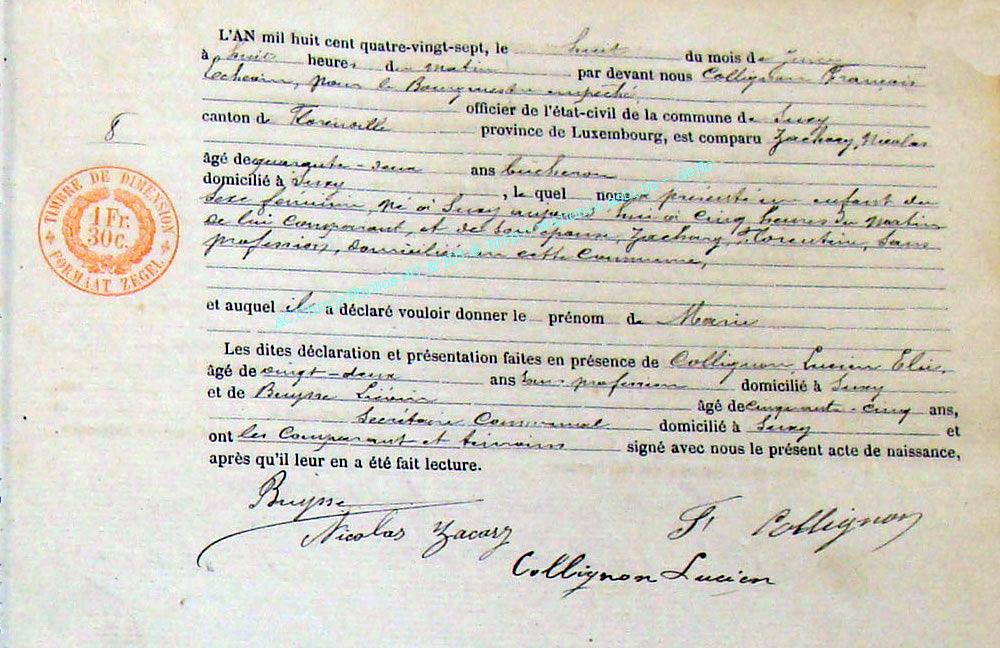 L'AN mil huit cent quatre-vingt-sept, le huit du mois de Juin
à huit heures du matin par devant nous Collignon François
Echevin, pour le Bourgmestre empêché,
officier de l'état-civil de la commune de Suxy
canton de Florenville province de Luxembourg, est comparu Zachary, Nicolas
8
âgé de quarante-deux ans bûcheron
domicilié à Suxy, le quel nous a présenté un enfant du
sexe féminin, né à Suxy aujourd'hui à cinq heures du matin
de lui comparant, et de son épouse, Zachary, Florentine, sans
profession, domiciliée en cette Commune,
et auquel il a déclaré vouloir donner le prénom de Marie
Les dites déclaration et présentation faites en présence de Collignon Lucien Elie,
âgé de vingt-deux ans sans profession domicilié à Suxy
et de Buysse Liévin âgé de cinquante-cinq ans,
Secrétaire Communal domicilié à Suxy et
ont les Comparant et témoins signé avec nous le présent acte de naissance,
après qu'il leur en a été fait lecture.
Buysse
Nicolas Zacary
F Collignon
Collignon Lucien
TIMBRE DE DIMENSION
1 Fr.
30c.
FORMAAT ZEGEL